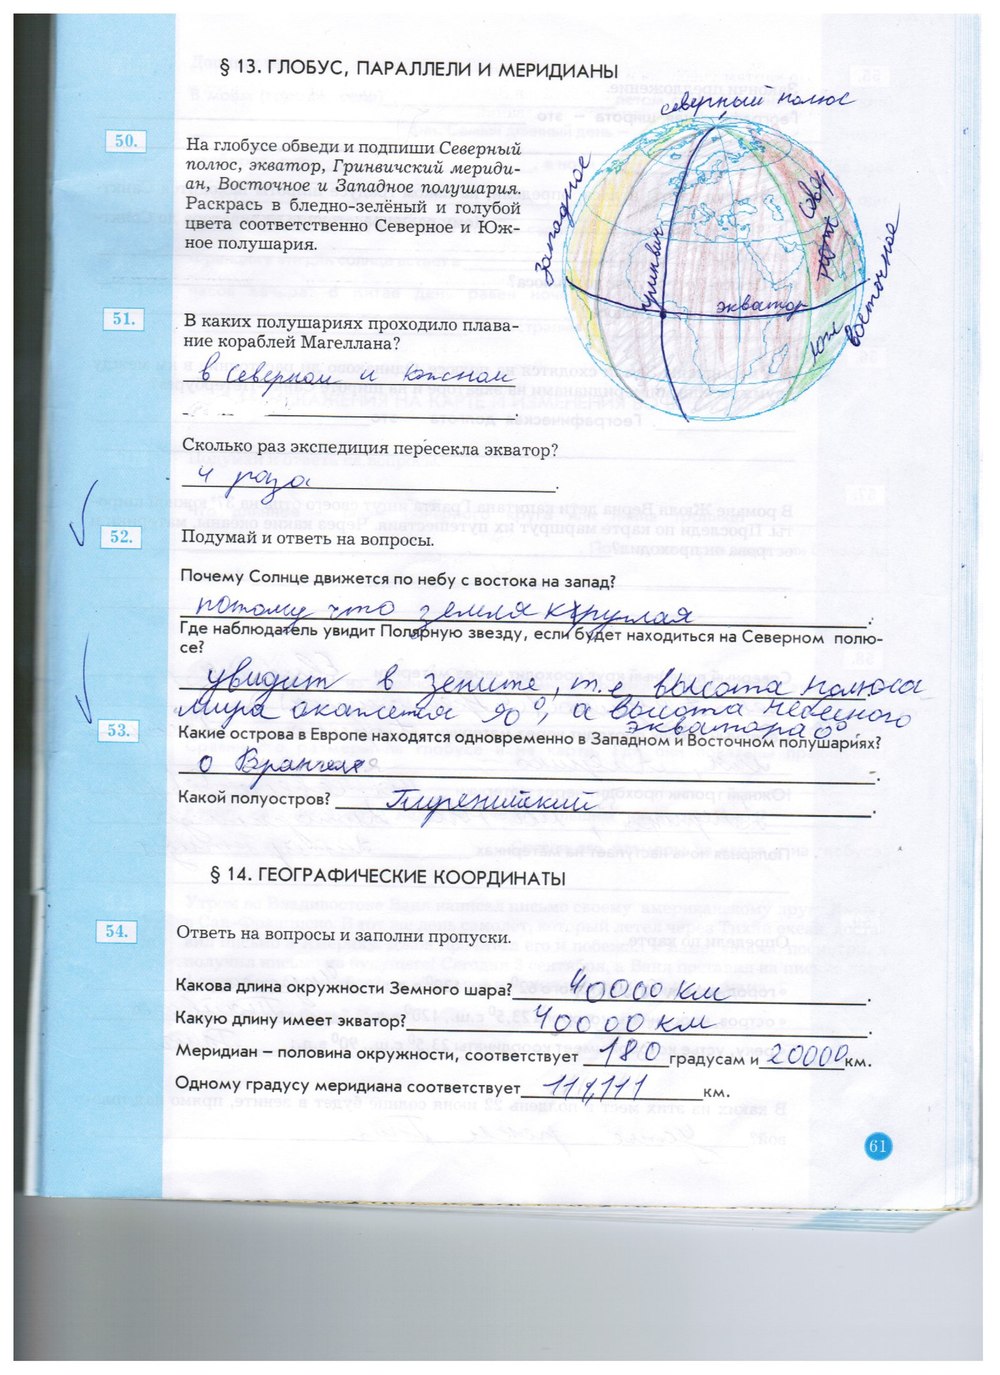 § 13. ГЛОБУС, ПАРАЛЛЕЛИ И МЕРИДИАНЫ
северный полюс
50.
На глобусе обведи и подпиши Северный
полюс, экватор, Гринвичский мериди-
ан, Восточное и Западное полушария.
Раскрась в бледно-зелёный и голубой
цвета соответственно Северное и Юж-
ное полушария.
Западное
гринвич
экватор
восточное
51.
В каких полушариях проходило плава-
ние кораблей Магеллана?
в северном и южном
Сколько раз экспедиция пересекла экватор?
4 раза
52.
Подумай и ответь на вопросы.
Почему Солнце движется по небу с востока на запад?
потому что земля круглая
Где наблюдатель увидит Полярную звезду, если будет находиться на Северном полю-
се?
увидит в зените, т.е высота полюса
мира окажется 90°, а высота небесного
экватора 0°
53.
Какие острова в Европе находятся одновременно в Западном и Восточном полушариях?
о Врангеля
Какой полуостров? Пиренийский
§ 14. ГЕОГРАФИЧЕСКИЕ КООРДИНАТЫ
54.
Ответь на вопросы и заполни пропуски.
Какова длина окружности Земного шара? 40000 км.
Какую длину имеет экватор? 40000 км.
Меридиан – половина окружности, соответствует 180 градусам и 20000 км.
Одному градусу меридиана соответствует 111,111 км.
61